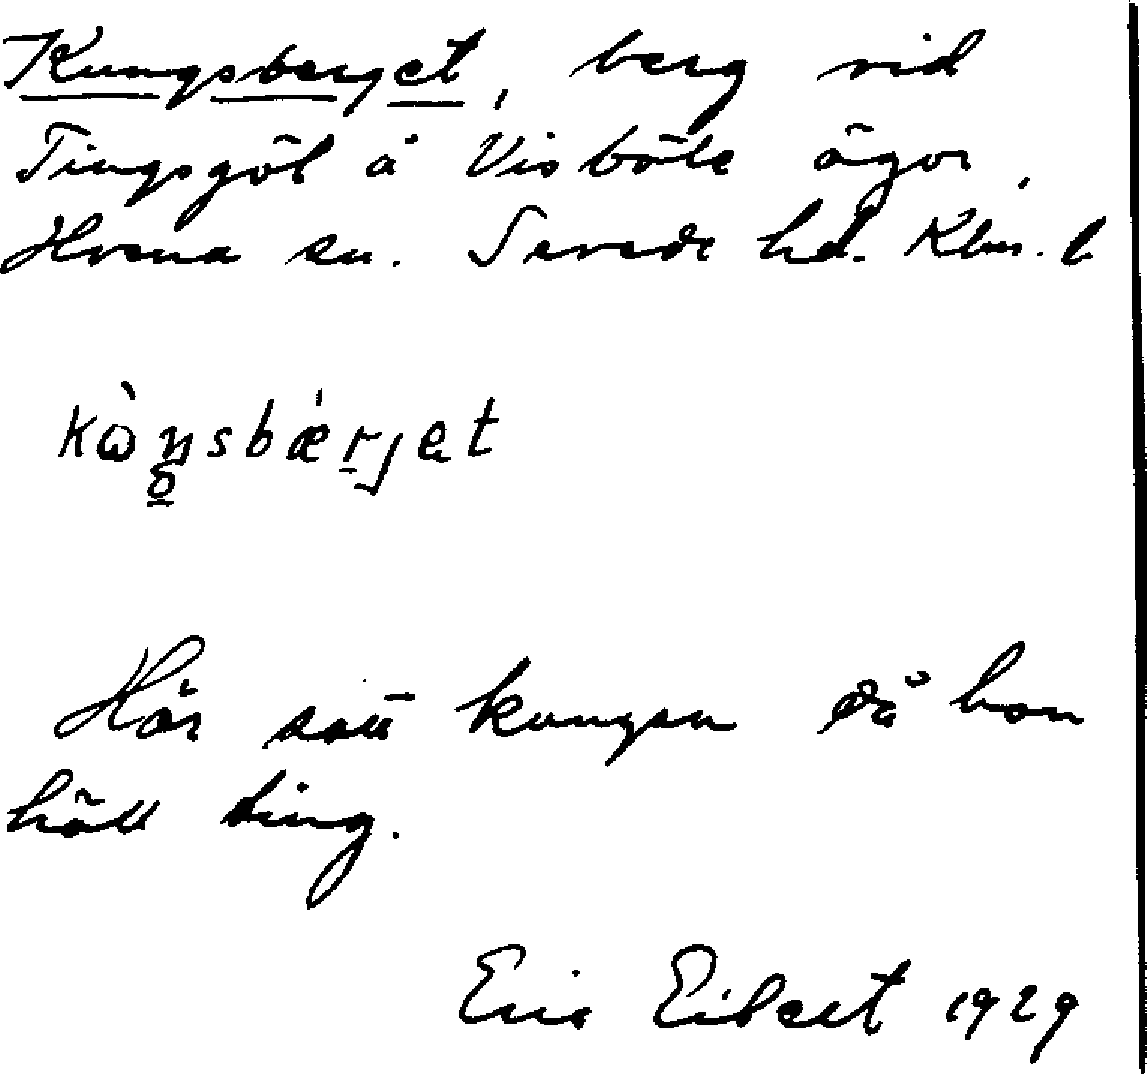 Kungsberget, berg vid
Tingsgöl å Visböle ägor,
Hvena sn. Sevede hd. Klm. l.
kὼŋsbǽrjet
Här satt kungen då han
höll ting.
Eric Eibert 1929